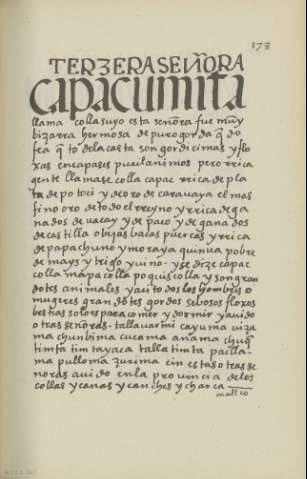 178
TERZERA SEÑORA
CAPACUMITA
llama collasuyo esta señora fue muy
bizarra hermosa de puro gorda q̃ do
fea q̃ to dela casta son gordicimas y flo
xas encapases pucilanimos pero rrica
gente llamase colla capac rrica de pla
ta de potoci y de oro de carauaya el mas
fino oro de todo el rreyno y rrica de ga
nados de uacay y de paco y de ganados
de castilla obejas bacas puercas y rrica
de papa chuno y moraya quinua pobre
de mays y trigo y uno y se dize capac
colla mapa colla poquis colla y son gran
dotes animales y auito dos los hombres o
mugeres grandotes gordos sebosos floxos
bestias solo es para comer y dormir y auido
otras señoras tallama cayuma uiza
ma chunbima cucama anama chuq
timta timtayaca talla timta paclla
ma pulloma zurima cin estas otras se
noras auido en la prouincia de los
collas y canas y canches y charca
mallco